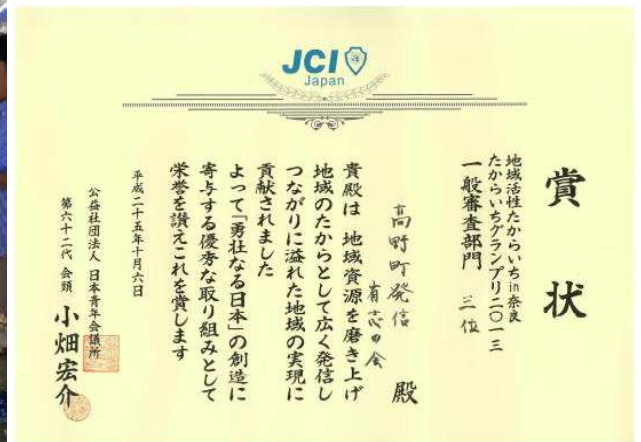 JCI
Japan
賞状
地域活性たからいちin奈良
たからいちグランプリ二〇一三
一般審査部門 三位
高野町発信
有志の会 殿
貴殿は 地域資源を磨き上げ
地域のたからとして広く発信し
つながりに溢れた地域の実現に
貢献されました
よって「勇壮なる日本」の創造に
寄与する優秀な取り組みとして
栄誉を讃えこれを賞します
平成二十五年十月六日
公益社団法人 日本青年会議所
第六十二代 会頭 小畑宏介